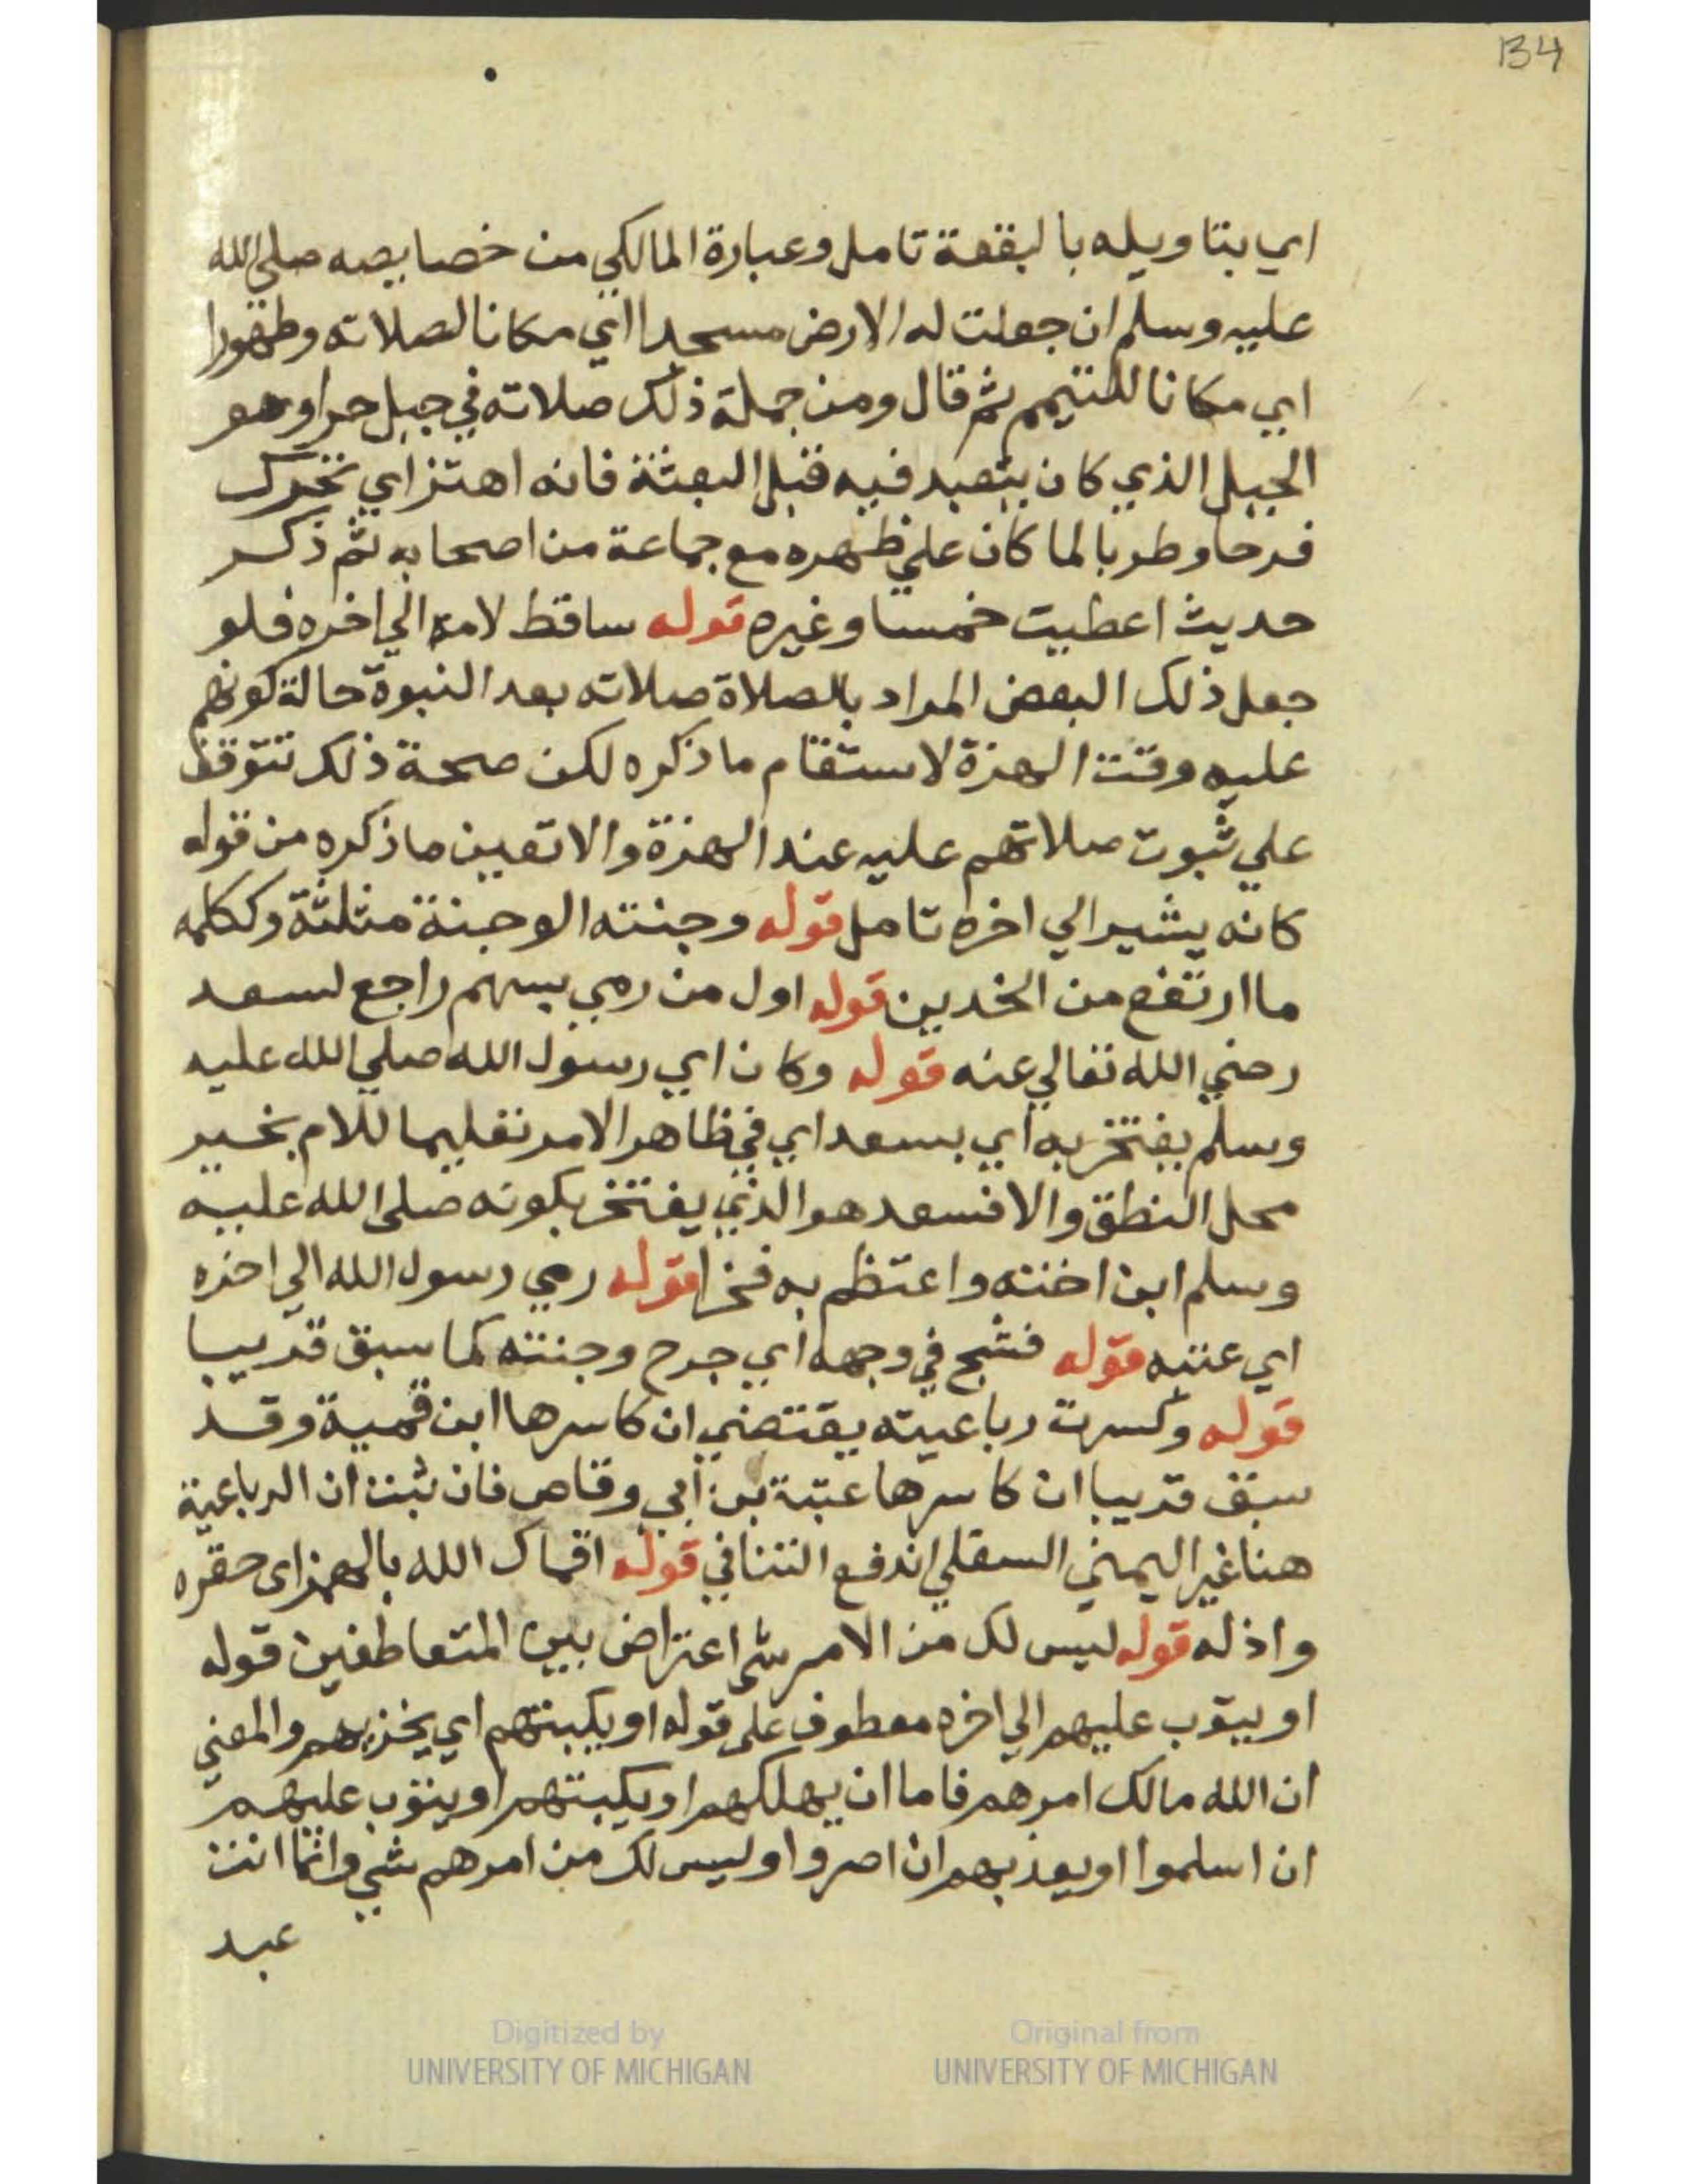 134
اي بتاويله بالبقعة تامل وعبارة المالكي من خصايصه صلي الله
عليه وسلم ان جعلت له الارض مسجدا اي مكانا لصلاته وطهورا
اي مكانا للتيمم ثم قال ومن جملة ذلك صلاته في جبل حرا وهو
الجبل الذي كان يتعبد فيه قبل البعثة فانه اهتز اي تحرك
فرحا وطربا لما كان علي ظهره مع جماعة من اصحابه ثم ذكر
حديث اعطيت خمسا وغيره قوله ساقط لامه الي اخره فلو
جعل ذلك البعض المراد بالصلاة صلاته بعد النبوة حالة كونهم
عليه وقت الهزة لاستقام ما ذكره لكن صحة ذلك تتوقف
علي ثبوت صلاتهم عليه عند الهزة والا تعين ما ذكره من قوله
كانه يشير الي اخره تامل قوله وجنته الوجنة مثلثة وككلمه
ما ارتفع من الخدين قوله اول من رمي بسهم راجع لسعد
رضي الله تعالي عنه قوله وكان اي رسول الله صلي الله عليه
وسلم يفتخر به اي بسعد اي في ظاهر الامر تعليما للام بخير
محل النطق والا فسعد هو الذي يفتخر بكونه صلي الله عليه
وسلم ابن اخته واعتظم به فخرا قوله رمي رسول الله الي اخره
اي عتبه قوله فشج في وجهه اي جرح وجنته كما سبق قريبا
قوله وكسرت رباعيته يقتضي ان كاسرها ابن قمية وقد
سبق قريبا ان كاسرها عتبة بن ابي وقاص فان ثبت ان الرباعية
هنا غير اليمني السفلي اندفع التنافي قوله اقماك الله بالهمز اى حقره
واذله قوله ليس لك من الامر شي اعتراض بين المتعاطفين قوله
او يتوب عليهم الي اخره معطوف علي قوله او يكبتهم اي يخزيهم والمعني
ان الله مالك امرهم فاما ان يهلكهم او يكبتهم او يتوب عليهم
ان اسلموا او يعذبهم ان اصروا وليس لك من امرهم شي وانما انت
عبد
Digitized by
UNIVERSITY OF MICHIGAN
Original from
UNIVERSITY OF MICHIGAN